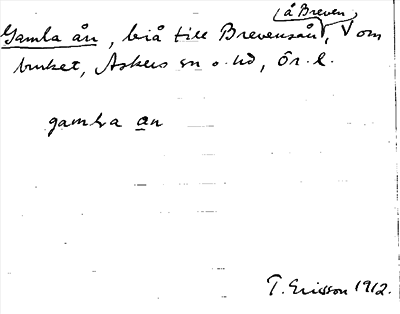 (å Breven)
Gamla ån, biå till Brevensån, V om
bruket, Askers sn o. hd, Ör. l.
gamla an
T. Ericsson 1912.